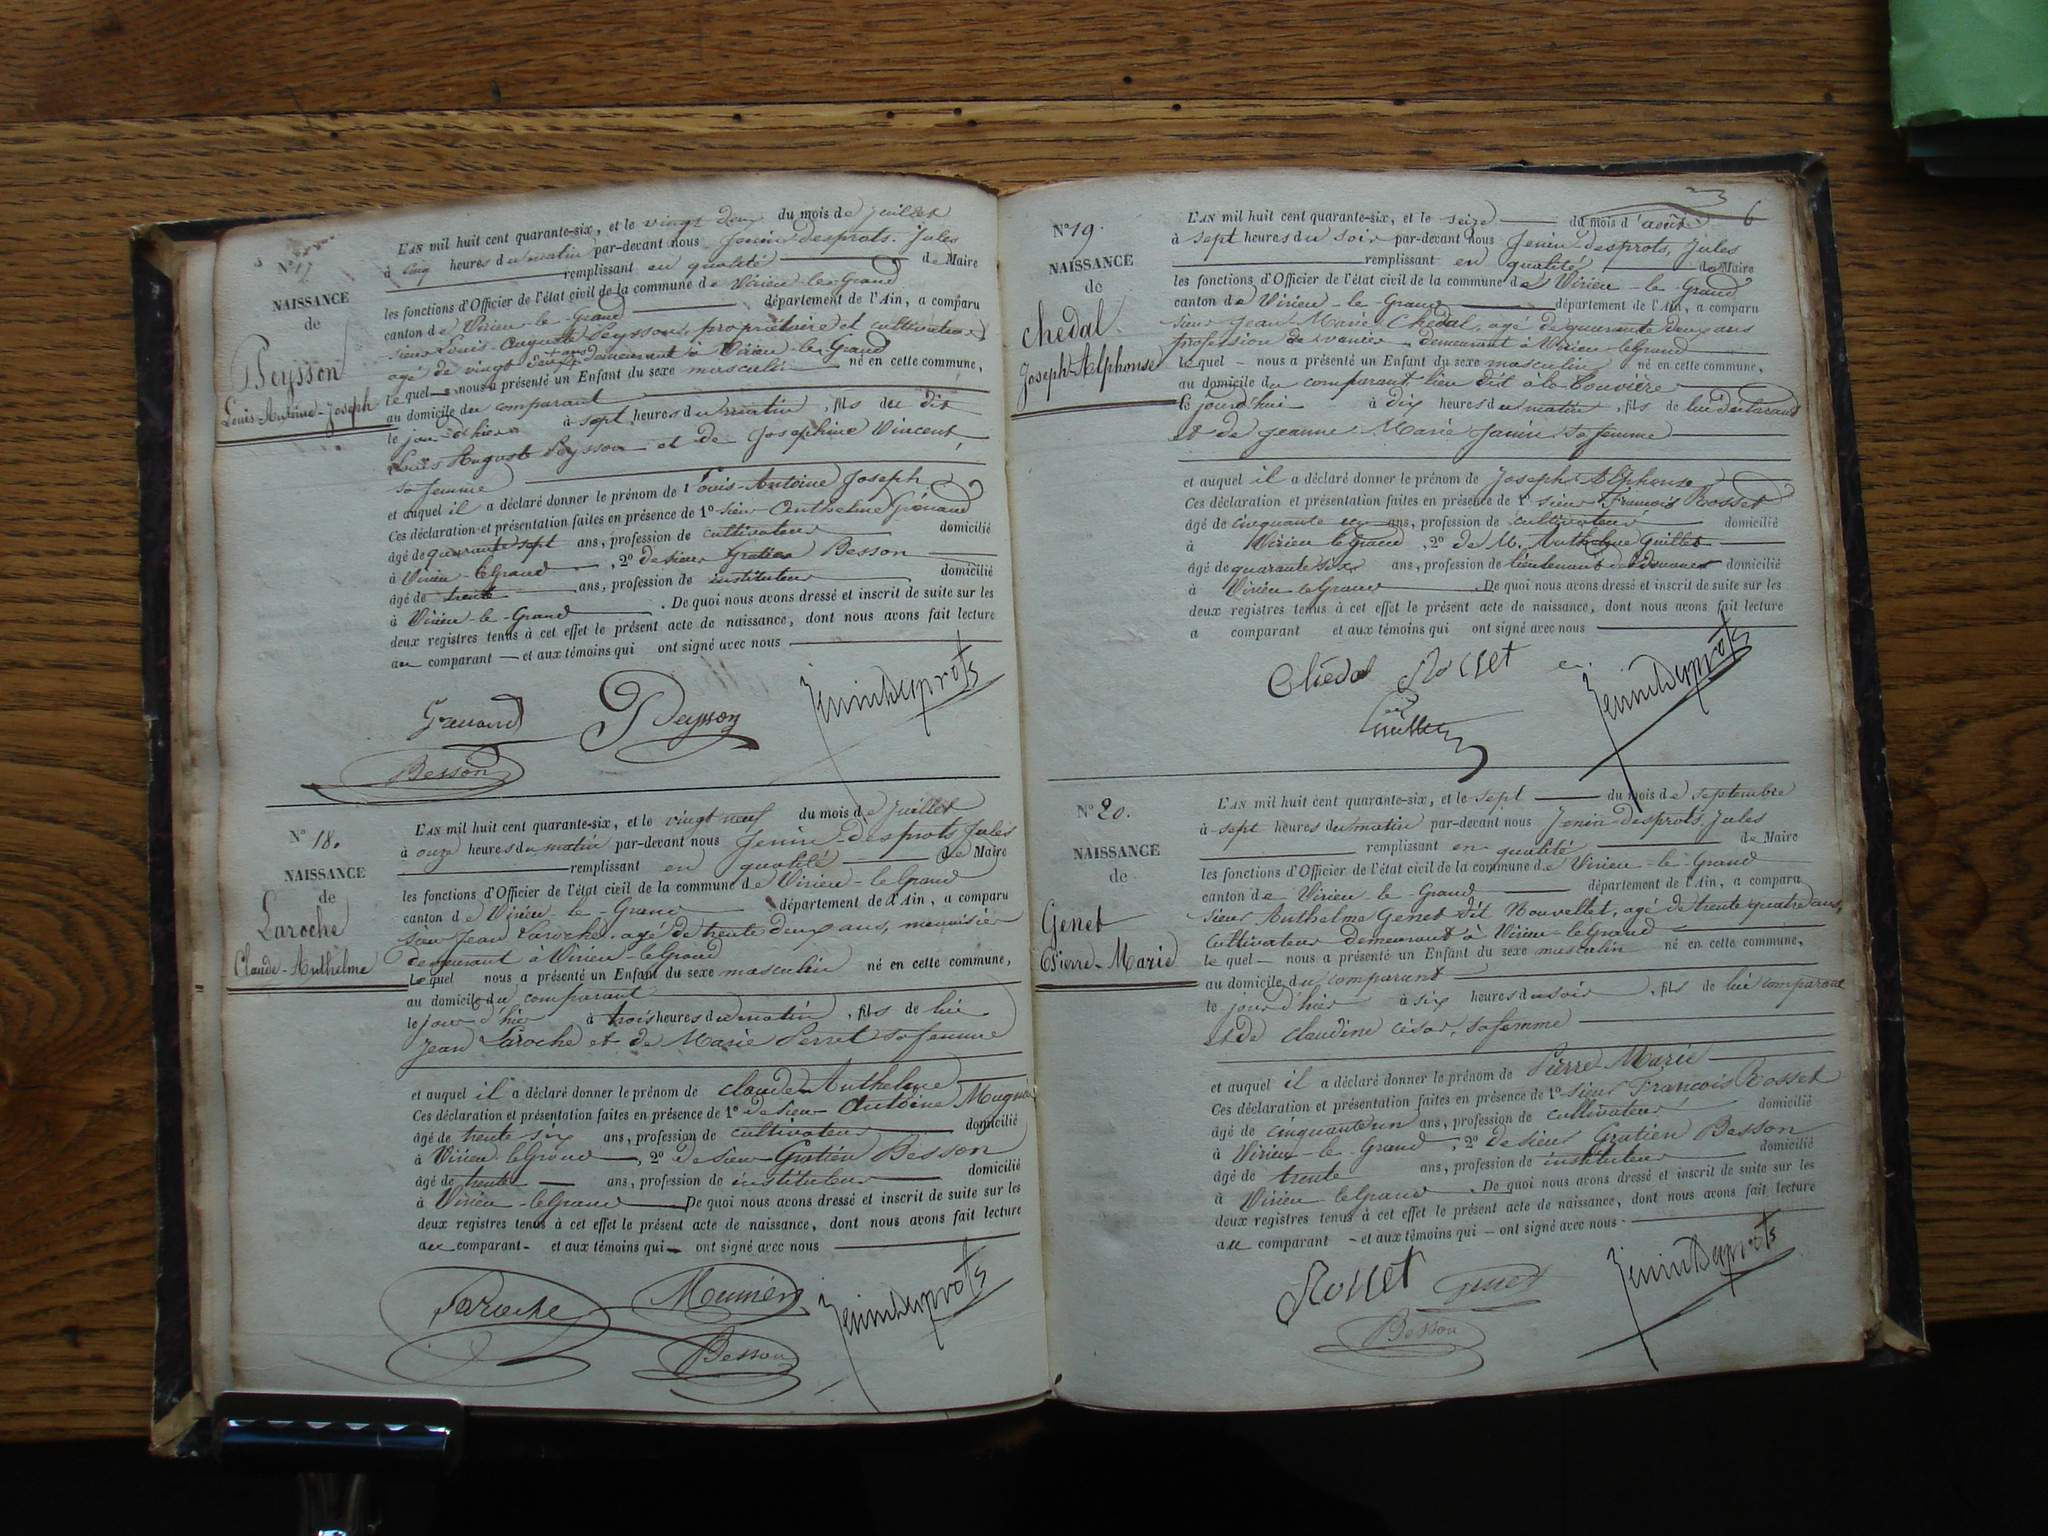 N° 17
NAISSANCE
de
Peysson
Louis-Antoine-Joseph
L'AN mil huit cent quarante-six, et le vingt deux du mois de Juillet
à cinq heures du matin par-devant nous Jenin desprots, Jules
remplissant en qualité de Maire
les fonctions d'Officier de l'état civil de la commune de Virieu-le-Grand
canton de Virieu-le-Grand département de l'Ain, a comparu
sieur Louis-Auguste Peysson, propriétaire et cultivateur
agé de vingt ans demeurant à Virieu-le-Grand
le quel nous a présenté un Enfant du sexe masculin né en cette commune,
au domicile du comparant
le jour d'hier à sept heures du matin, fils du dit
Louis Auguste Peysson et de Josephine Vincent,
sa femme
et auquel il a déclaré donner le prénom de Louis-Antoine Joseph
Ces déclaration et présentation faites en présence de 1° sieur Anthelme Grénaud
âgé de quarante sept ans, profession de cultivateur domicilié
à Virieu-leGrand, 2° de sieur Gratien Besson
âgé de trente ans, profession de instituteur domicilié
à Virieu-le-Grand. De quoi nous avons dressé et inscrit de suite sur les
deux registres tenus à cet effet le présent acte de naissance, dont nous avons fait lecture
au comparant et aux témoins qui ont signé avec nous
Grenaud Peysson Jenin Desprots
Besson
N° 18.
NAISSANCE
de
Laroche
Claude-Anthelme
L'AN mil huit cent quarante-six, et le vingt neuf du mois de Juillet
à onze heures du matin par-devant nous Jenin-desprots, Jules
remplissant en qualité de Maire
les fonctions d'Officier de l'état civil de la commune de Virieu-leGrand
canton de Virieu-le-Grand département de l'Ain, a comparu
sieur Jean Laroche, agé de trente deux ans, menuisier
demeurant à Virieu-leGrand
le quel nous a présenté un Enfant du sexe masculin né en cette commune,
au domicile du comparant
le jour d'hier à trois heures du matin, fils de lui
Jean Laroche et de Marie Perret sa femme
et auquel il a déclaré donner le prénom de Claude-Anthelme
Ces déclaration et présentation faites en présence de 1° de sieur Antoine
âgé de trente six ans, profession de cultivateur domicilié
à Virieu-leGrand, 2° de sieur Gratien Besson
âgé de trente ans, profession de instituteur domicilié
à Virieu-leGrand De quoi nous avons dressé et inscrit de suite sur les
deux registres tenus à cet effet le présent acte de naissance, dont nous avons fait lecture
au comparant et aux témoins qui ont signé avec nous
Laroche Jenin Desprots
Besson
6
N° 19.
NAISSANCE
de
Chedal
Joseph-Alphonse
L'AN mil huit cent quarante-six, et le seize du mois d'août
à sept heures du soir par-devant nous Jenin desprots, Jules
remplissant en qualité de Maire
les fonctions d'Officier de l'état civil de la commune de Virieu-le-Grand
canton de Virieu-le-Grand département de l'Ain, a comparu
sieur Jean Marie Chedal, agé de quarante deux ans
profession de vanier demeurant à Virieu leGrand
le quel nous a présenté un Enfant du sexe masculin né en cette commune,
au domicile du comparant lieu dit à la
le jourd'hui à dix heures du matin, fils de lui declarant
et de Jeanne Marie Janin sa femme
et auquel il a déclaré donner le prénom de Joseph Alphonse
Ces déclaration et présentation faites en présence de 1° sieur François Rosset
âgé de cinquante un ans, profession de cultivateur domicilié
à Virieu leGrand, 2° de M. Anthelme Guillet
âgé de quarante six ans, profession de lieutenant de Douanes domicilié
à Virieu leGrand. De quoi nous avons dressé et inscrit de suite sur les
deux registres tenus à cet effet le présent acte de naissance, dont nous avons fait lecture
a comparant et aux témoins qui ont signé avec nous
Chédal Rosset Jenin Desprots
N° 20.
NAISSANCE
de
Genet
Pierre-Marie
L'AN mil huit cent quarante-six, et le sept du mois de septembre
à sept heures du matin par-devant nous Jenin desprots, Jules
remplissant en qualité de Maire
les fonctions d'Officier de l'état civil de la commune de Virieu-le-Grand
canton de Virieu le-Grand département de l'Ain, a comparu
sieur Anthelme Genet dit Nouvellet, agé de trente quatre ans,
cultivateur demeurant à Virieu-leGrand
le quel nous a présenté un Enfant du sexe masculin né en cette commune,
au domicile du comparant
le jour d'hier à six heures du soir, fils de lui comparant
et de Claudine César, sa femme
et auquel il a déclaré donner le prénom de Pierre Marie
Ces déclaration et présentation faites en présence de 1° sieur François Rosset
âgé de cinquante un ans, profession de cultivateur domicilié
à Virieu-le-Grand, 2° de sieur Gratien Besson
âgé de trente ans, profession de instituteur domicilié
à Virieu leGrand. De quoi nous avons dressé et inscrit de suite sur les
deux registres tenus à cet effet le présent acte de naissance, dont nous avons fait lecture
au comparant et aux témoins qui ont signé avec nous
Rosset Jenin Desprots
Besson